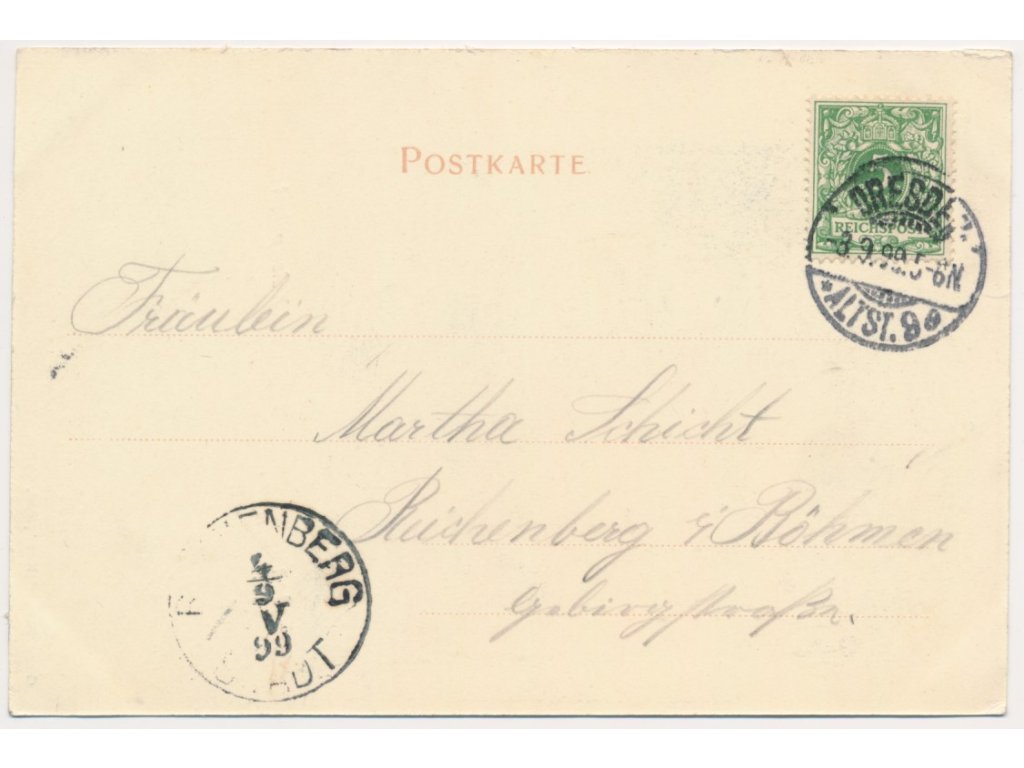 POSTKARTE
REICHSPOST
DRESDEN
3.9.99.5-6N
*ALTST. 9e
Fräulein
Martha Schicht
Reichenberg i/ Böhmen
Gebirgstraße.
ENBERG
4/9
V
99
STADT